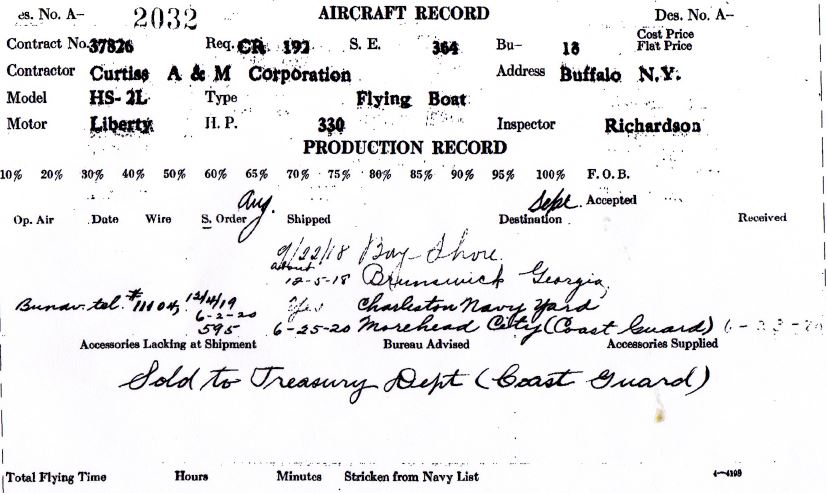 es. No. A- 2032 AIRCRAFT RECORD Des. No. A-
Contract No. 37826 Req. CR 192 S. E. 364 Bu- 18 Cost Price
Flat Price
Contractor Curtiss A & M Corporation Address Buffalo N.Y.
Model HS-2L Type Flying Boat
Motor Liberty H. P. 330 Inspector Richardson
PRODUCTION RECORD
10% 20% 30% 40% 50% 60% 65% 70% 75% 80% 85% 90% 95% 100% F. O. B.
Aug. Sept. Accepted
Op. Air Date Wire S. Order Shipped Destination Received
9/22/18 Bay Shore
about
12-5-18 Brunswick Georgia
Bunav. tel. #11104, 12/4/19 Yes Charleston Navy Yard
6-2-20
595 6-25-20 Morehead City (Coast Guard)
Accessories Lacking at Shipment Bureau Advised Accessories Supplied
Sold to Treasury Dept (Coast Guard)
Total Flying Time Hours Minutes Stricken from Navy List